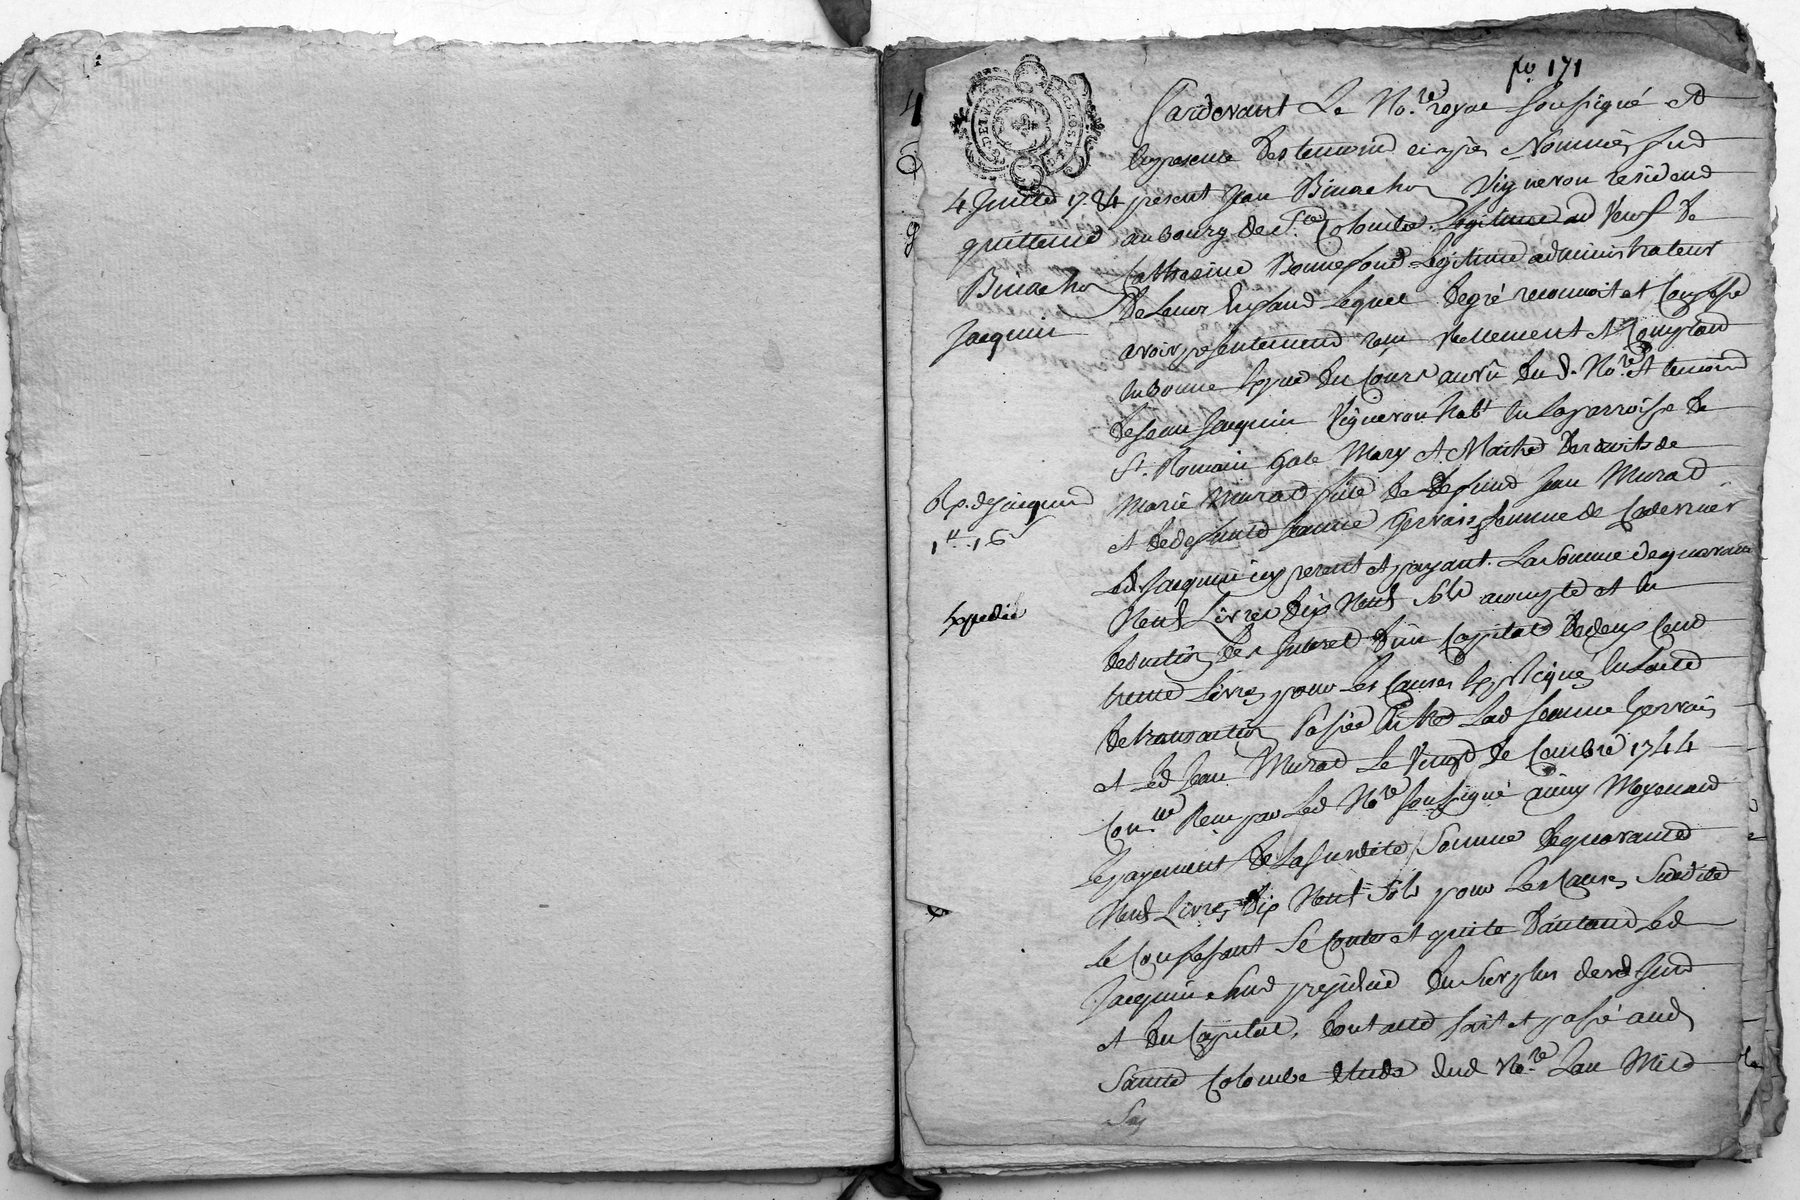 fo. 171
4
Pardevant Le No.re royal soussigné et
En presence des temoins ci après Nommés fut
4 Juillet 1784
present Jean Binachon Vigneron résidend
quittance
au bourg de Ste Colombe, Legitime ad Veuf de
Binachon
Catherine Bonnefond Legitime administrateur
de Leurs Enfans Lequel de gré reconnoit et Confesse
Jacquin
avoir presentement reçu réellement et Comptant
En bonne Espece du Cours au vû du d. No.re et temoins
de Jean Jacquin Vigneron habt En La parroisse de
St. Romain Gale Mary et Maitre des droits de
Exp. de Jacquin
Marie Murat fille de defunt Jean Murat
1# 1 6
et de defunte Jeanne Gervais femme de Ce dernier
Led. Jacquin icy present et payant. La Somme de quarante
Expedié
Neuf Livres dix Neuf Sols acompte et En
deduction des Interet d'un Capital de deux Cent
trente Livres pour Les Causes Expliquées En L'acte
de transaction Passée Entre Lad Jeanne Gervais
et Led Jean Murat Le Vingt de Cembre 1744
Con.lle Reçu par Led No.re Soussigné ainsy Moyenant
Le payement de La susdite Somme de quarante
Neuf Livres dix Neuf Sols pour Les Causes Susdite
Le Confessant Se Contente et quite d'autant Led
Jacquin Sans prejudice du Surplus desd. Int
et du Capital, dont acte fait et passé aud
Sainte Colombe Etude dud No.re L'an Mil
Sep